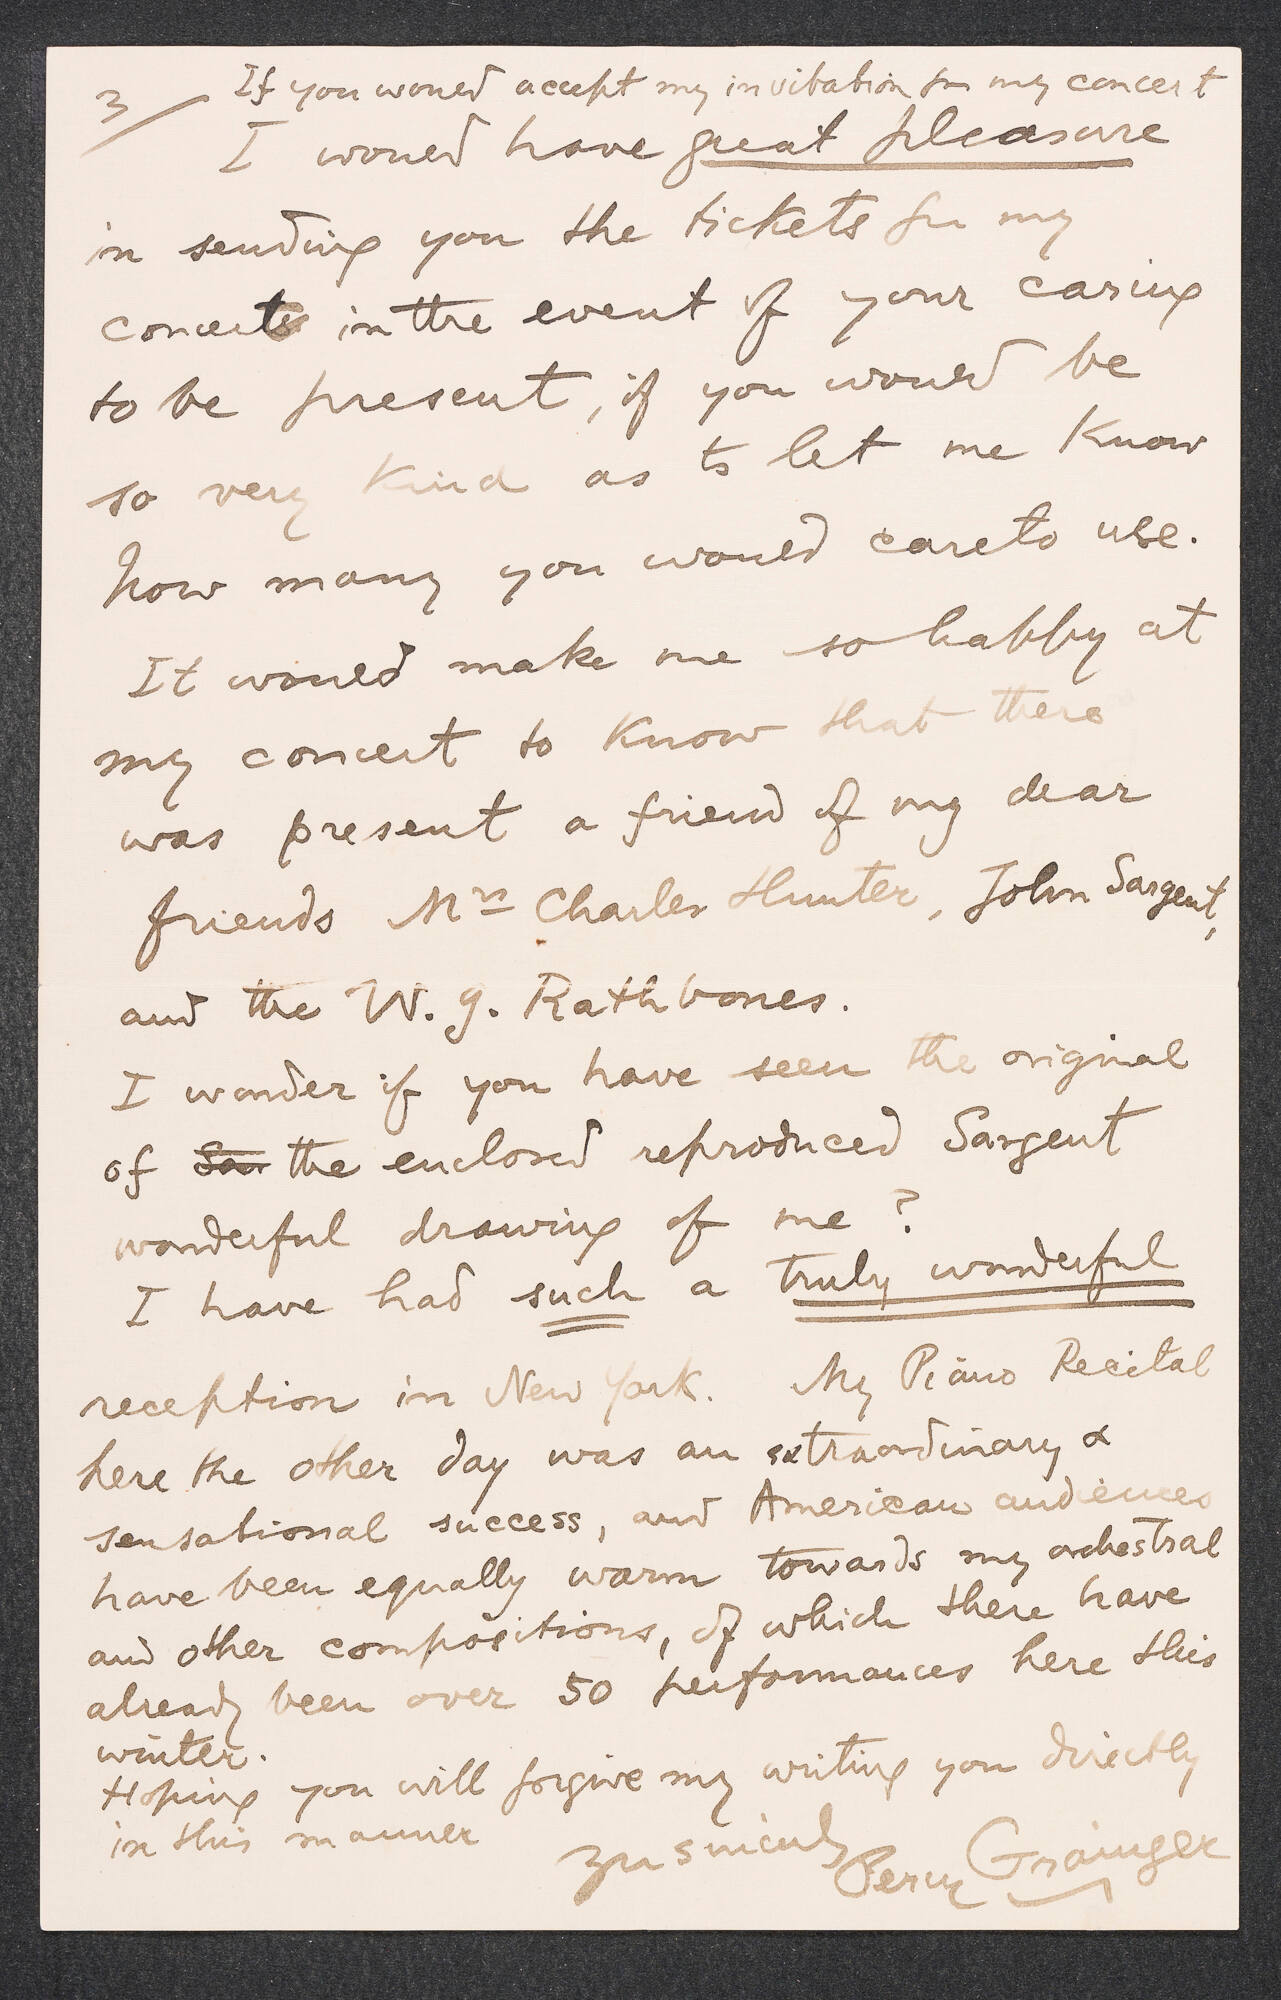 3/ If you would accept my invitation for my concert
I would have great pleasure
in sending you the tickets for my
concert in the event of your caring
to be present, if you would be
so very kind as to let me know
how many you would care to use.
It would make me so happy at
my concert to know that there
was present a friend of my dear
friends Mrs Charles Hunter, John Sargent,
and the W. G. Rathbones.
I wonder if you have seen the original
of the enclosed reproduced Sargent
wonderful drawing of me?
I have had such a truly wonderful
reception in New York. My Piano Recital
here the other day was an extraordinary &
sensational success, and American audiences
have been equally warm towards my orchestral
and other compositions, of which there have
already been over 50 performances here this
winter.
Hoping you will forgive my writing you directly
in this manner
Yrs sincerely
Percy Grainger